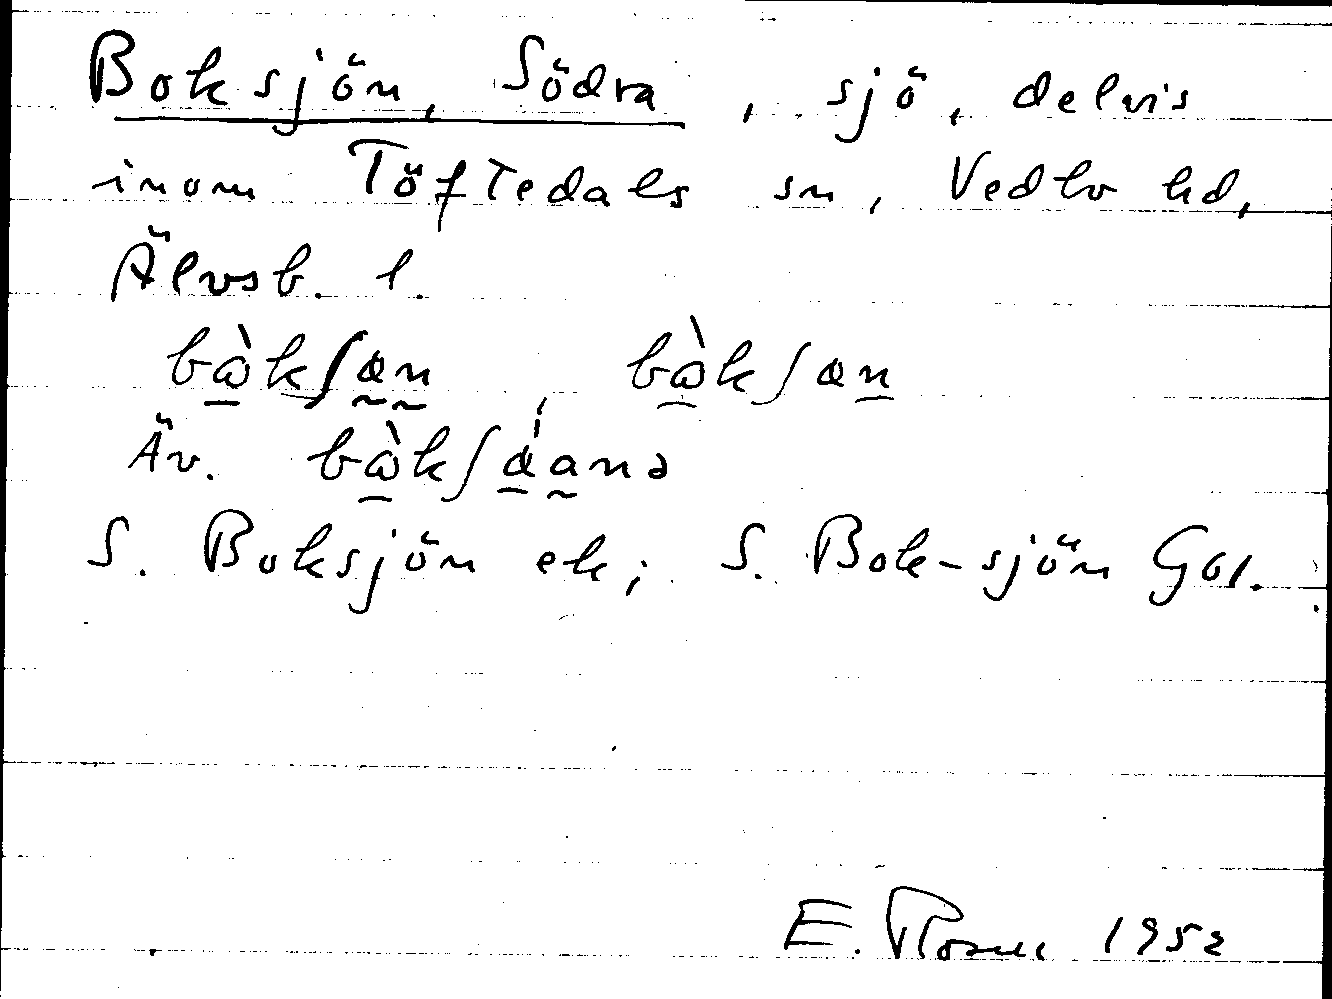 Boksjön, Södra, sjö, delvis
inom Töftedals sn, Vedbo hd,
Älvsb. l.
bὰkʃan, bὰkʃan
Äv.
S. Boksjön ek; S. Bok-sjön Gsl.
E. Rosell 1952